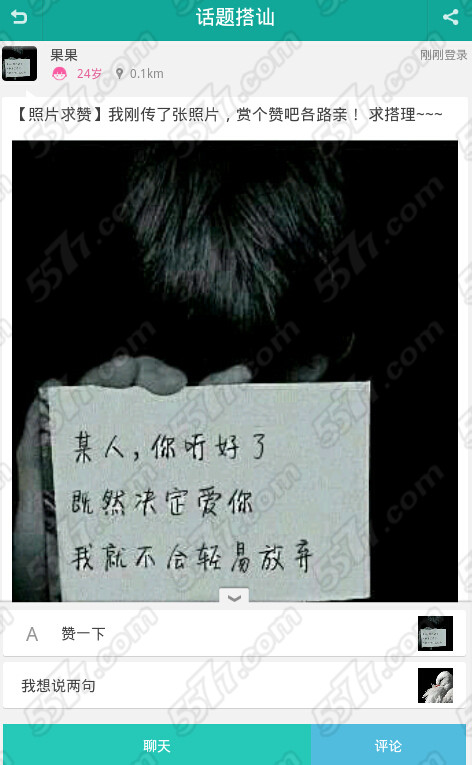 话题搭讪
果果
刚刚登录
24岁
0.1km
【照片求赞】我刚传了张照片，赏个赞吧各路亲！ 求搭理~~~
某人，你听好了
既然决定爱你
我就不会轻易放弃
A 赞一下
我想说两句
聊天
评论
5577.com